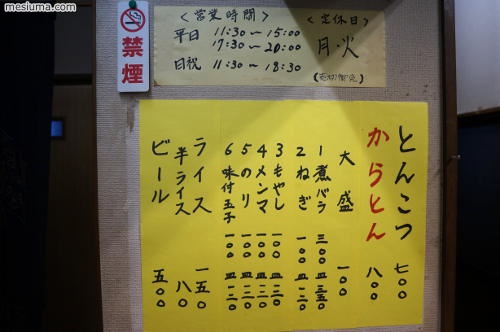 mesluma.com
禁煙
<営業時間>
平日 11:30〜15:00
17:30〜20:00
日祝 11:30〜18:30
<定休日>
月・火
(売切御免)
とんこつ 七〇〇
からとん 八〇〇
大盛 一〇〇
1煮バラ 三〇〇 皿 三五〇
2ねぎ 一〇〇 皿
3もやし 一〇〇 皿 一二〇
4メンマ 一〇〇 皿 一二〇
5のり 一〇〇 皿 一二〇
6味付玉子 一〇〇 皿 一二〇
ライス 一五〇
半ライス 八〇
ビール 五〇〇
mesluma.com